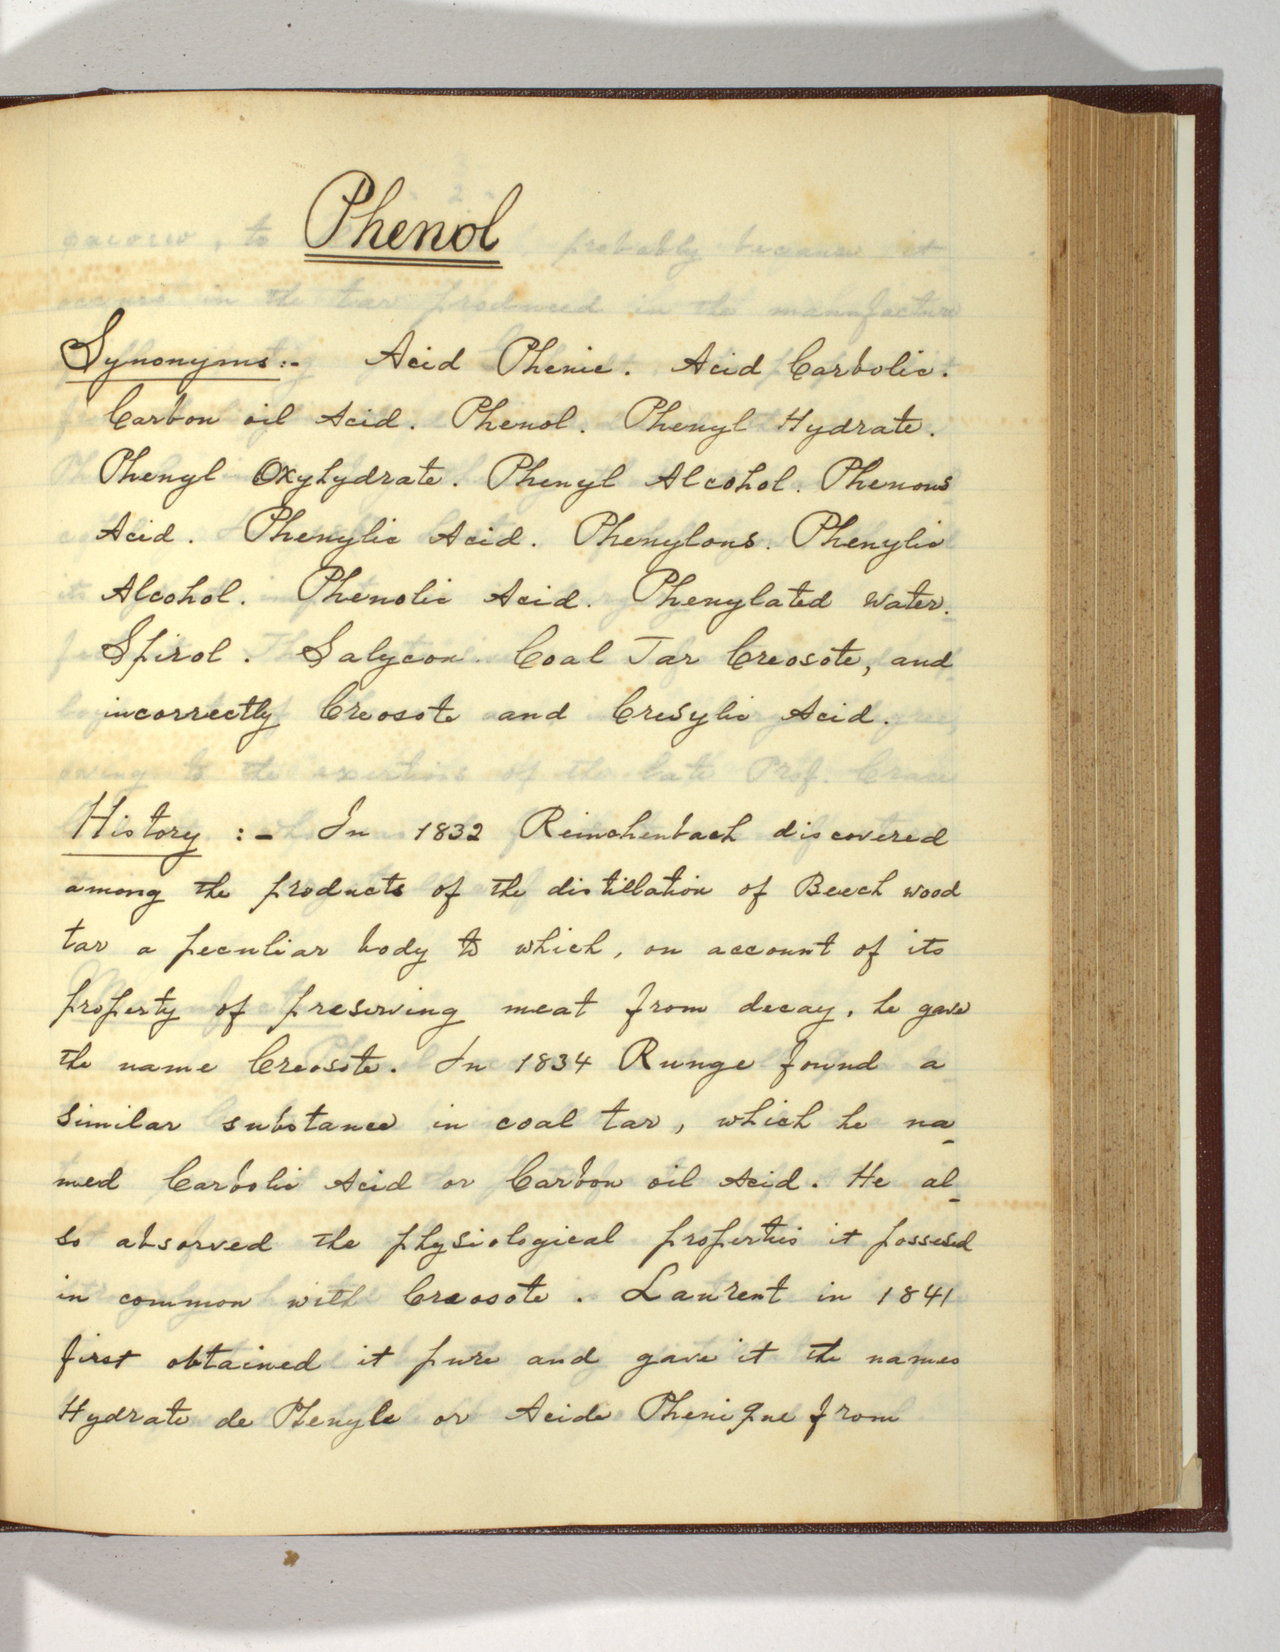 Phenol
Synonyms:- Acid Phenic. Acid Carbolic.
Carbon oil Acid. Phenol. Phenyl Hydrate.
Phenyl Oxyhydrate. Phenyl Alcohol. Phenous
Acid. Phenylic Acid. Phenylous. Phenylic
Alcohol. Phenolic Acid. Phenylated water.
Spirol. Salycon. Coal Tar Creosote, and
incorrectly Creosote and Cresylic Acid.
History :- In 1832 Reinchenbach discovered
among the products of the distillation of Beech wood
tar a peculiar body to which, on account of its
property of preserving meat from decay, he gave
the name Creosote. In 1834 Runge found a
similar substance in coal tar, which he na-
med Carbolic Acid or Carbon oil Acid. He al-
so absorved the physiological properties it possesed
in common with Creosote. Laurent in 1841
first obtained it pure and gave it the names
Hydrate de Phenyle or Acide Phenique from